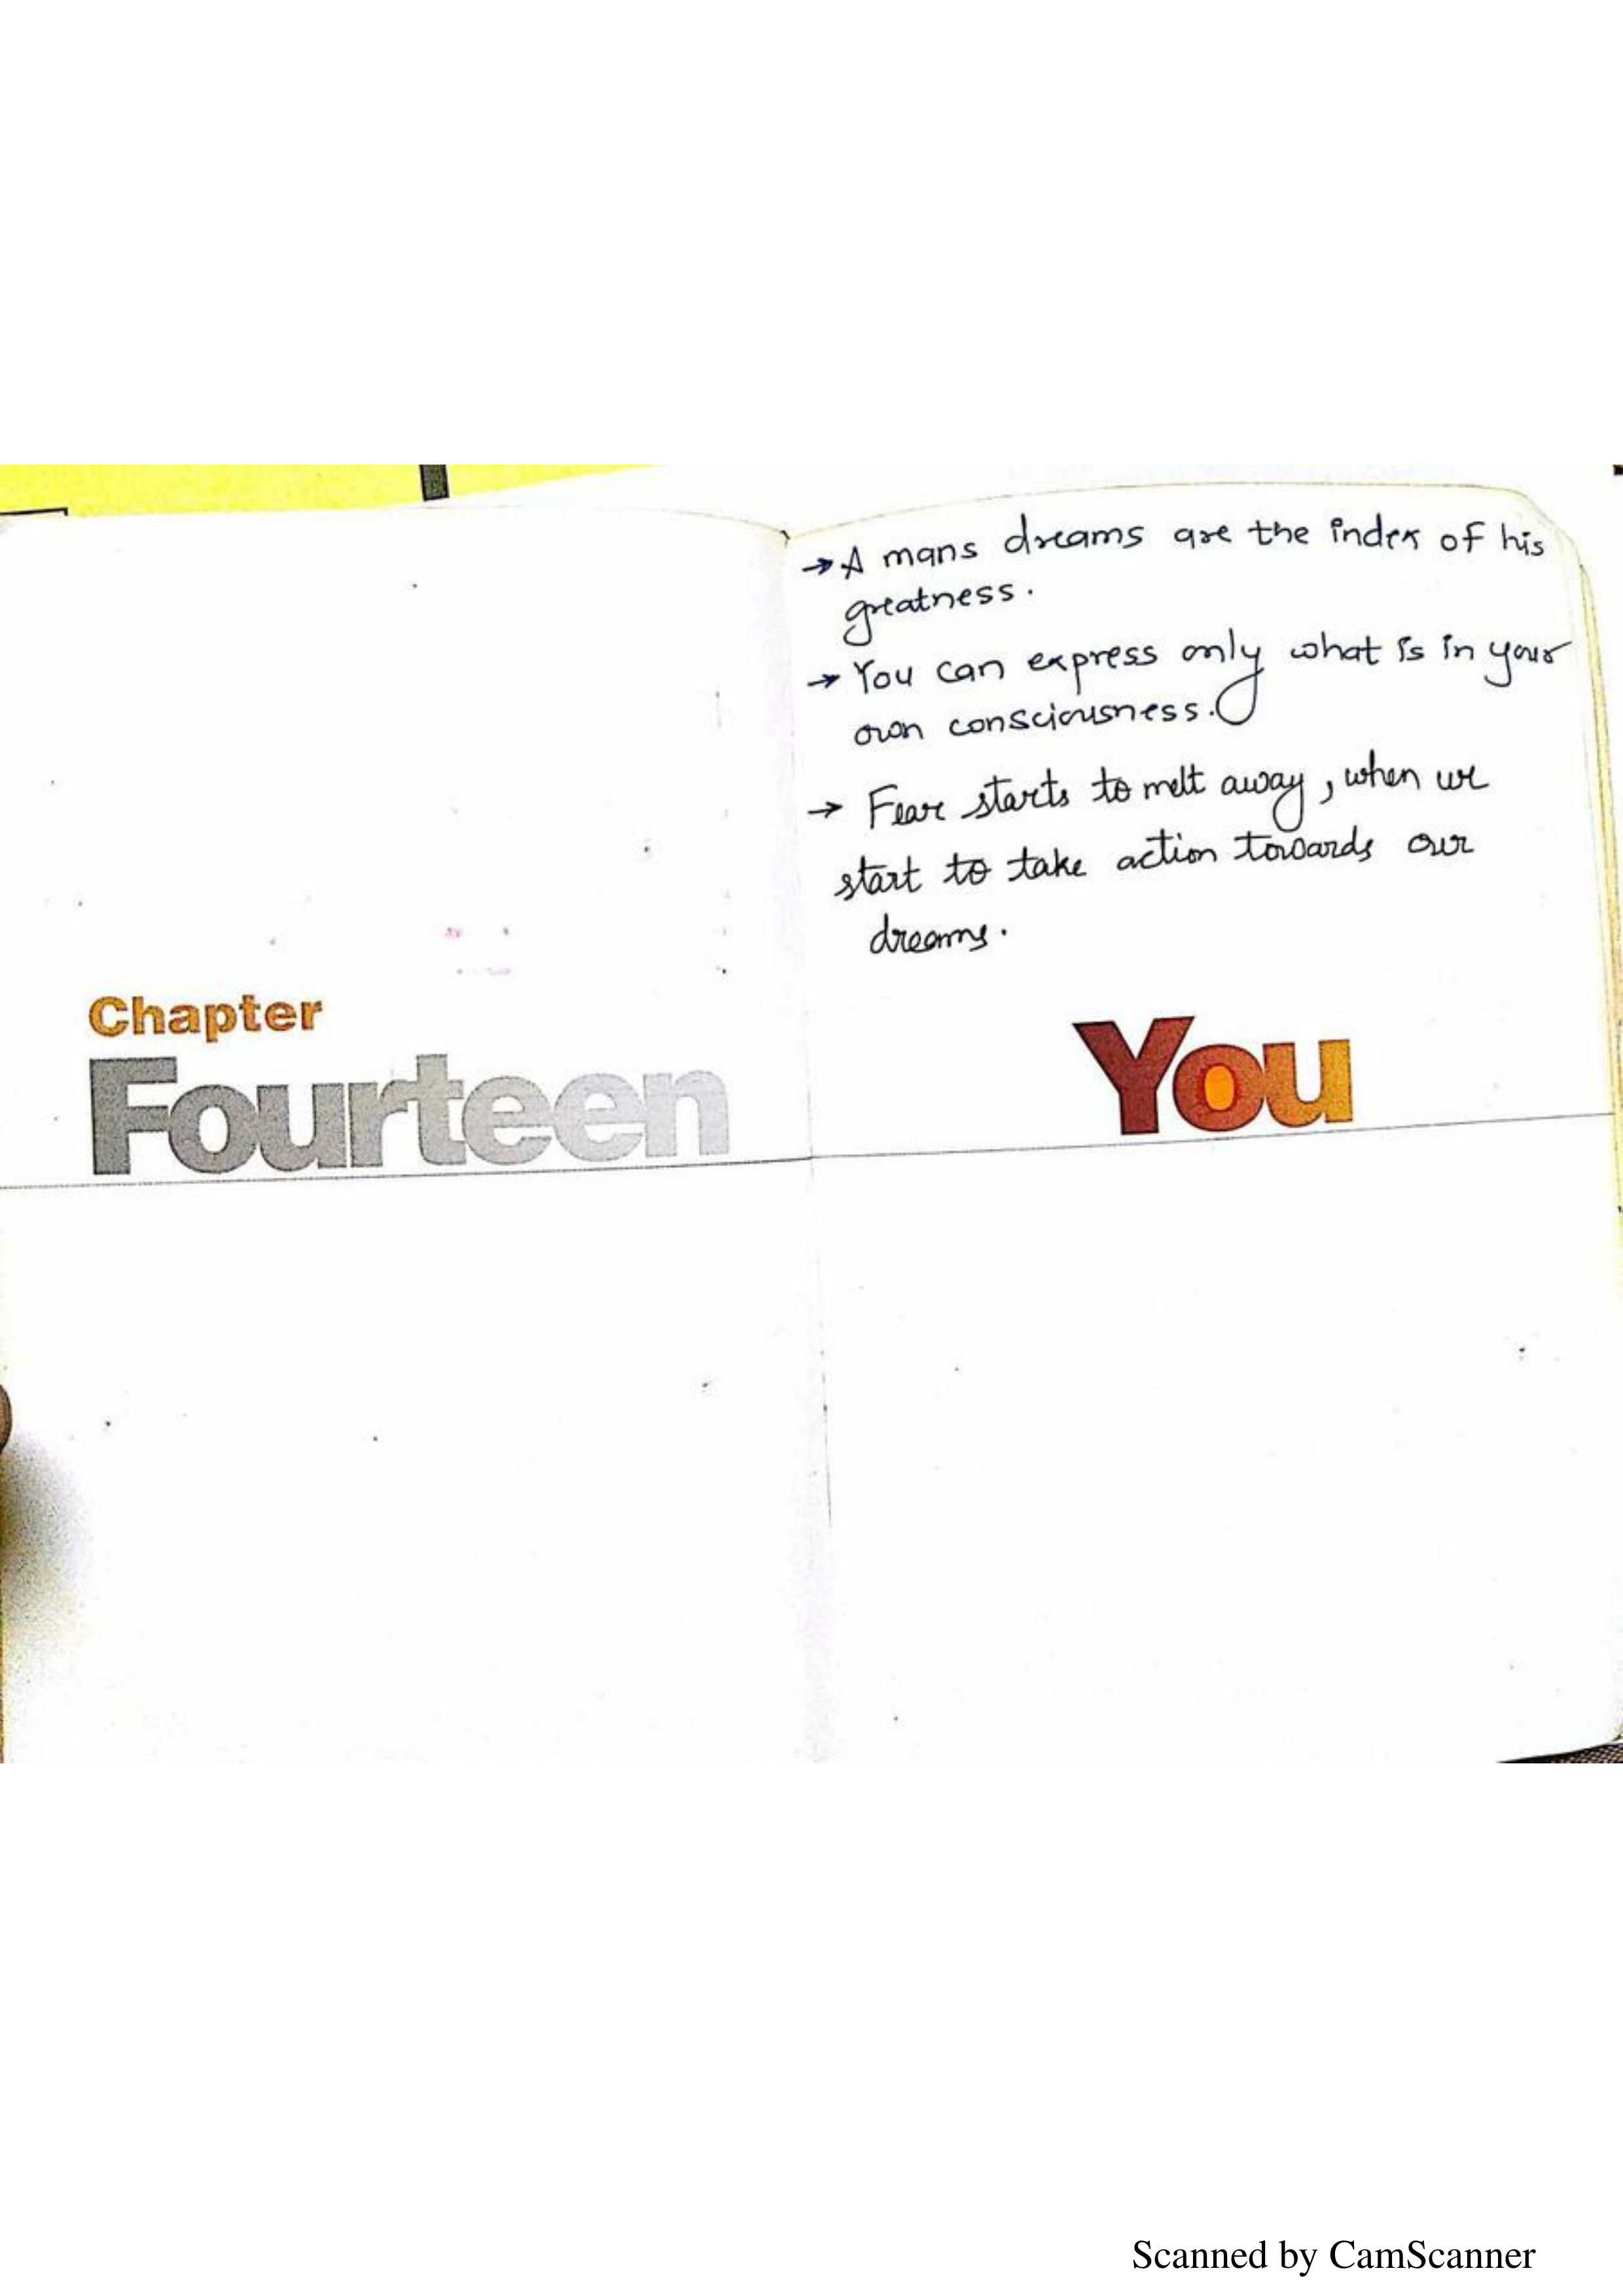 Chapter
Fourteen
→ A mans dreams are the index of his
greatness.
→ You can express only what is in your
own consciousness.
→ Fear starts to melt away, when we
start to take action towards our
dreams.
You
Scanned by CamScanner